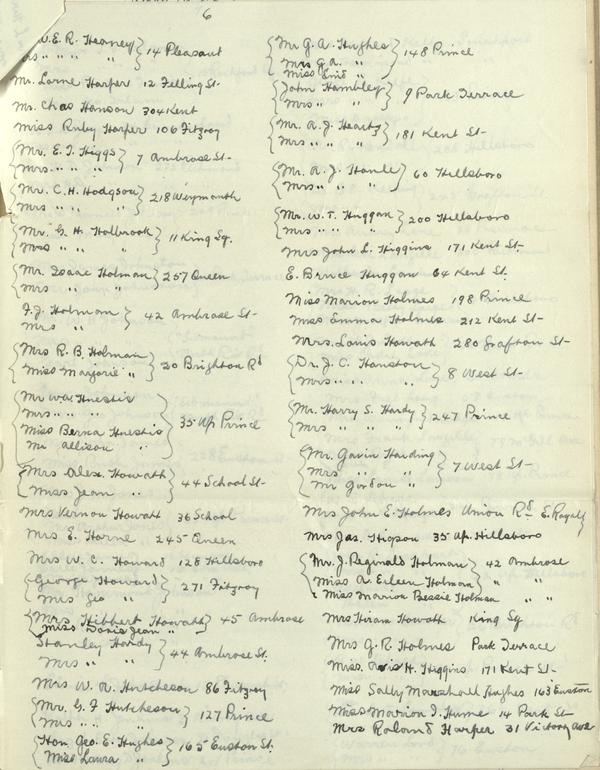 6
W. E. R. Heaney } 14 Pleasant
" " " "
Mr. Lorne Harper 12 Felling St.
Mr. Chas Hanson 304 Kent
Miss Ruby Harper 106 Fitzroy
{ Mr. E. T. Higgs } 7 Ambrose St-
Mrs. " " "
{ Mr. C. H. Hodgson } 218 Weymouth
Mrs " " "
{ Mr. G. H. Holbrook } 11 King Sq.
Mrs " " "
{ Mr. Isaac Holman } 257 Queen
Mrs " "
{ F. J. Holman } 42 Ambrose St-
Mrs " "
{ Mrs R. B. Holman } 20 Brighton Rd
Miss Marjorie "
{ Mr W.W. Huestis
Mrs " " "
Miss Berna Huestis } 35 Up. Prince
Mr Allison "
{ Mrs Alex. Howatt } 44 School St-
Miss Jean "
Mrs Vernon Howatt 36 School
Mrs E. Horne 245 Queen
Mrs W. C. Howard 128 Hillsboro
{ George Howard } 271 Fitzroy
Mrs Geo "
{ Mrs Hibbert Howatt } 45 Ambrose
Miss Doris Jean "
{ Stanley Hardy } 44 Ambrose St.
Mrs " "
Mrs W. A. Hutcheson 86 Fitzroy
{ Mr. G. F. Hutcheson } 127 Prince
Mrs " " "
{ Hon. Geo. E. Hughes } 165 Euston St.
Miss Laura "
{ Mr G. A. Hughes } 148 Prince
Mrs G. A. "
Miss Enid "
{ John Hambley } 9 Park Terrace
Mrs " "
{ Mr. A. J. Heartz } 181 Kent St-
Mrs " " "
{ Mr. A. J. } 60 Hillsboro
Mrs " " "
{ Mr. W. T. Huggan } 200 Hillsboro
Mrs " " "
Mrs John L. Higgins 171 Kent St-
E. Bruce Huggan 64 Kent St.
Miss Marion Holmes 198 Prince
Miss Emma Holmes 212 Kent St-
Mrs. Louis Howatt 280 Grafton St-
{ Dr. J. C. Houston } 8 West St-
Mrs " " "
{ Mr. Harry S. Hardy } 247 Prince
Mrs " " "
{ Mr. Gavin Harding
Mrs " " } 7 West St-
Mr Gordon "
Mrs John E. Holmes Union Rd. E. Royalty
Mrs Jas. Higson 35 Up. Hillsboro
{ Mr. J. Reginald Holman } 42 Ambrose
Miss A. Eileen Holman } " "
Miss Marion Bessie Holman " "
Mrs Hiram Howatt King Sq
Mrs G. R. Holmes Park Terrace
Miss. H. Higgins 171 Kent St-
Miss Sally Marshall Hughes 163 Euston
Miss Marion I. Hume 14 Park St-
Mrs Roland Harper 31 Victory Ave